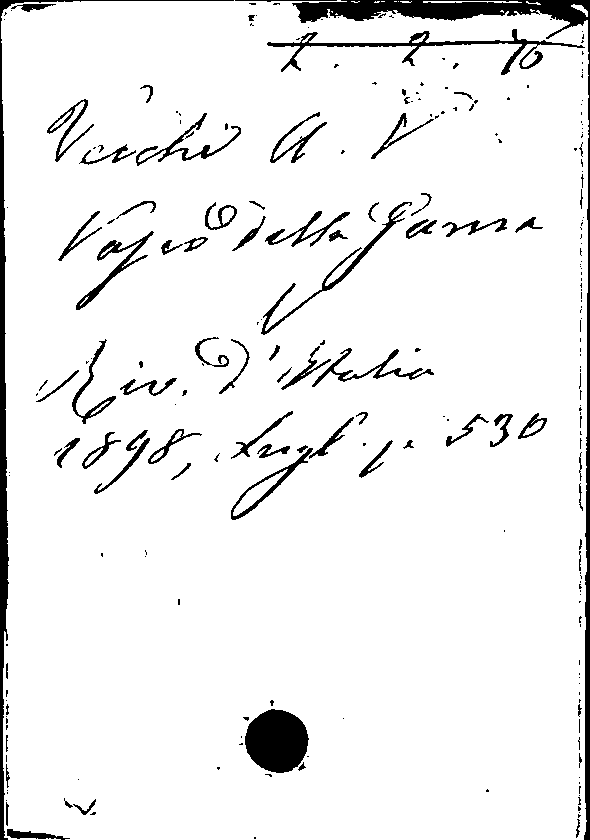 2. 2. 76
Vecchi A. V
Vasco della Gama
Riv. d'Italia
1898, Lugl. p. 530